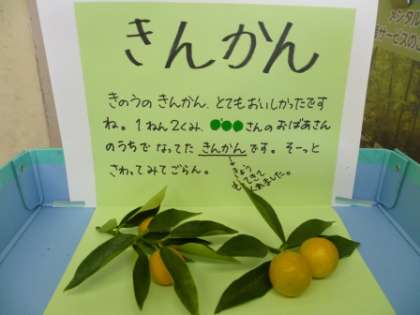 きんかん
きのうの きんかん、とてもおいしかったです
ね。1ねん2くみ、●●●さんのおばあさん
のうちで なってた きんかんです。そーっと
さわってみてごらん。
きょう
もってきて
くれました。
メンタル
サービスの